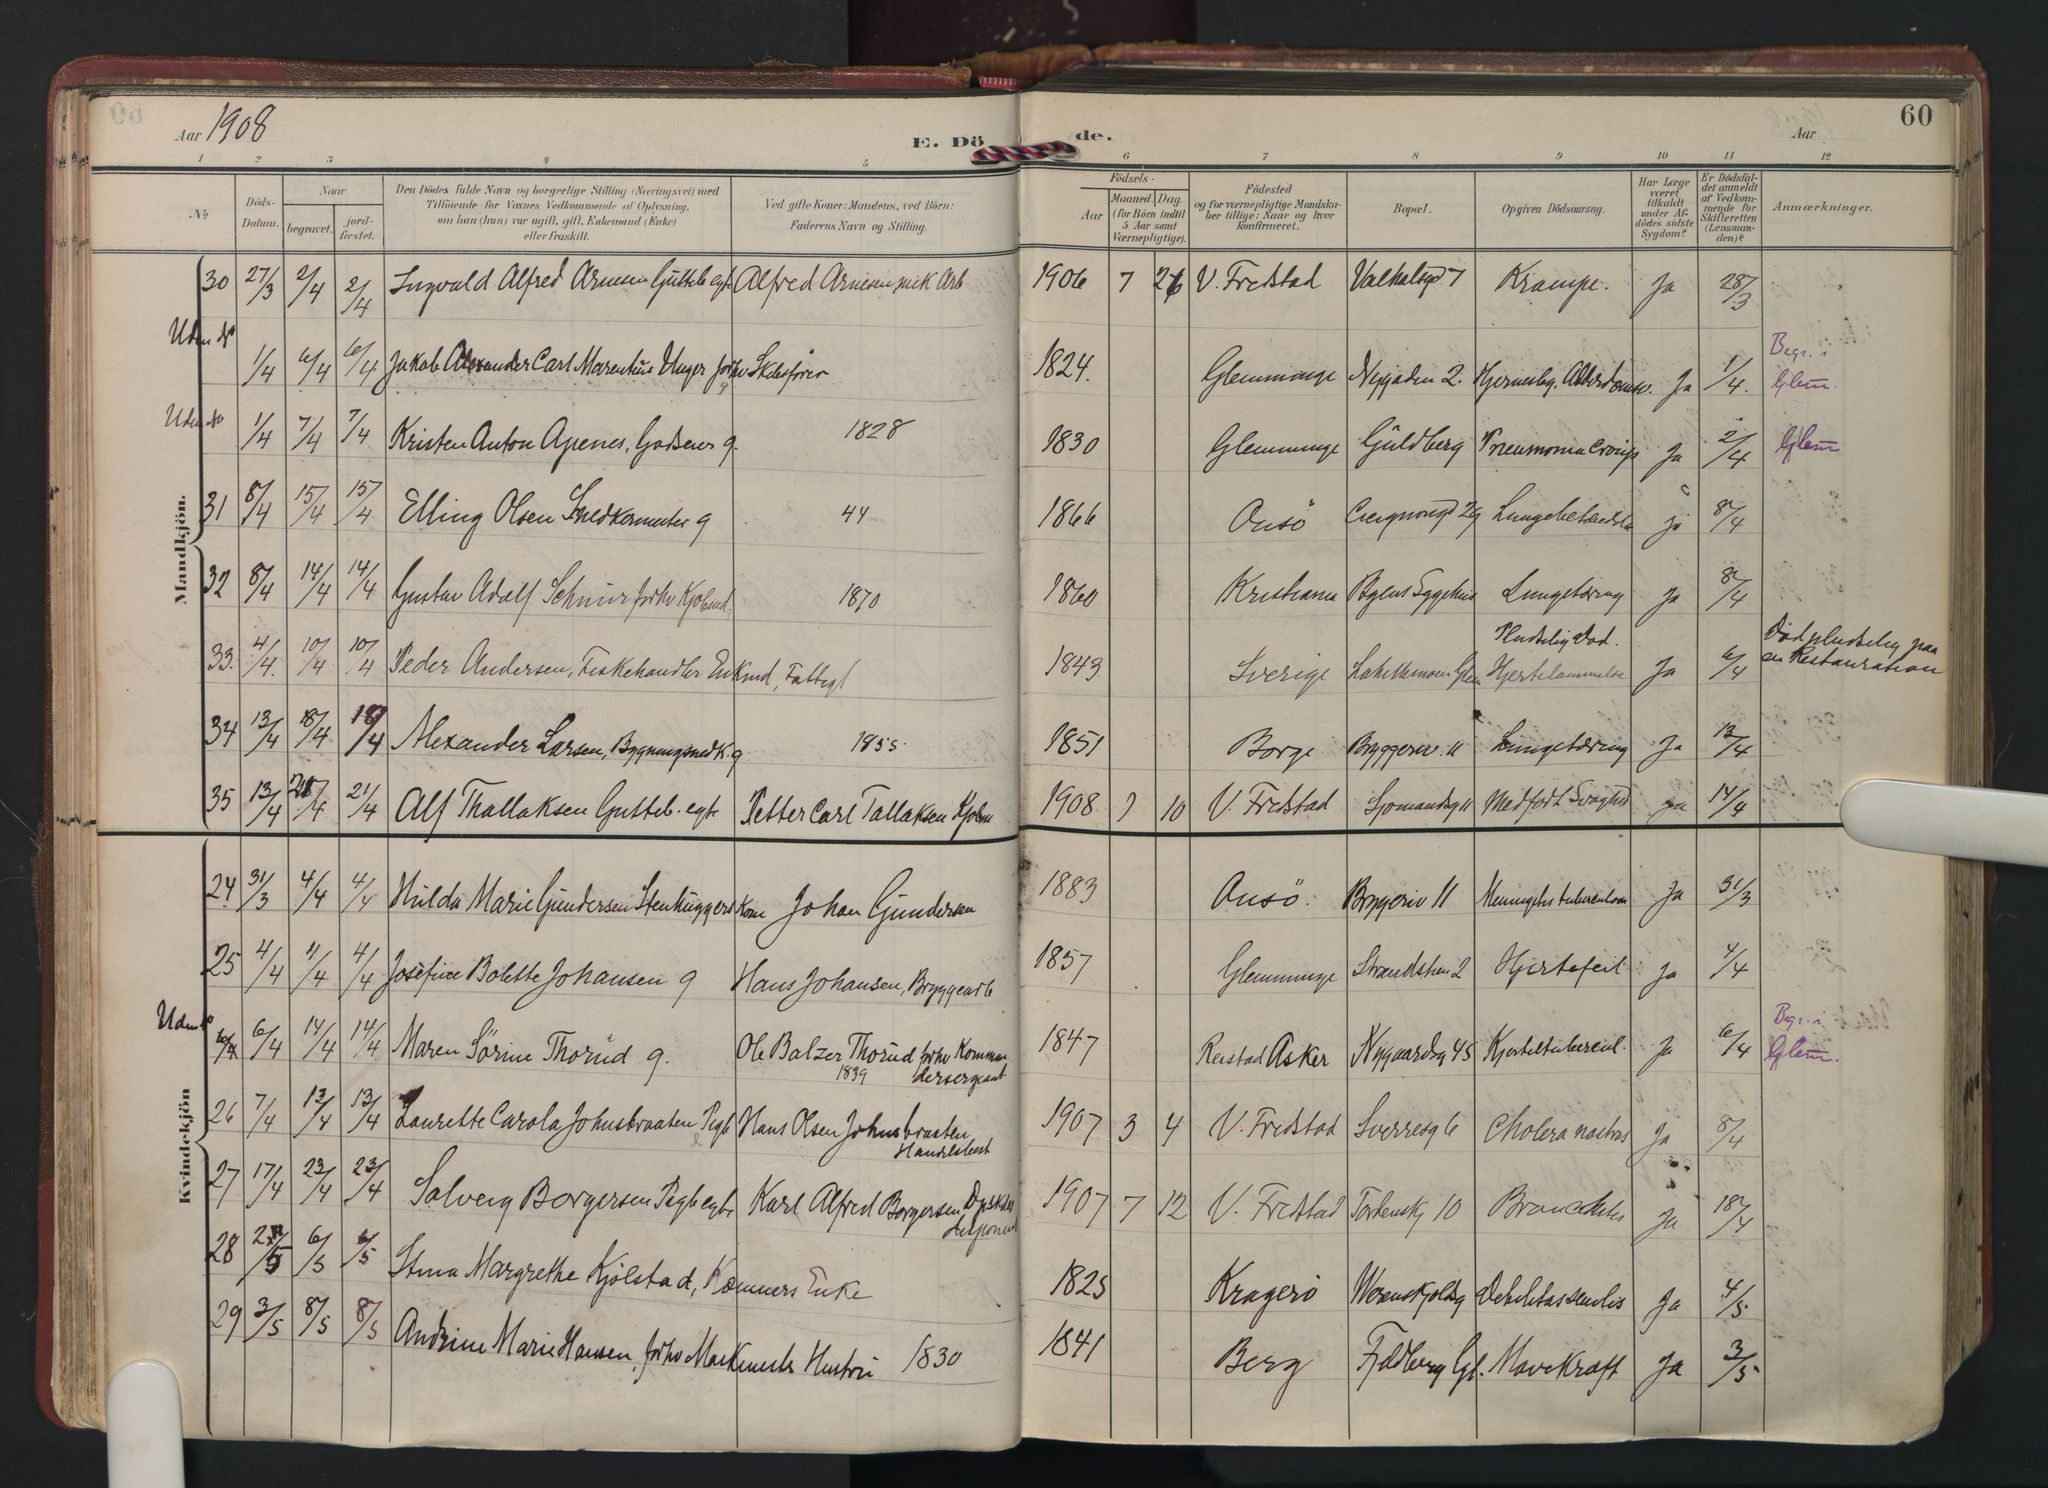 Aar 1908
E. Dö de.
Aar
60
1 2 3 4 5 6 7 8 9 10 11 12
No
Döds-
Datum.
Naar
begravet.
jord-
fæstet.
Den Dödes fulde Navn og borgerlige Stilling (Næringsvei) med
Tilföiende for Voxnes Vedkommende af Oplysning,
om han (hun) var ugift, gift, Enkemand (Enke)
eller fraskilt.
Ved gifte Koner: Mandens, ved Börn:
Faderens Navn og Stilling.
Födsels-
Aar
Maaned. Dag.
(for Börn indtil
5 Aar samt
Værnepligtige).
Födested
og for værnepligtige Mandska-
ber tillige: Naar og hvor
konfirmeret.
Bopæl.
Opgiven Dödsaarsag.
Har Læge
været
tilkaldt
under Af-
dödes sidste
Sygdom?
Er Dödsfal-
det anmeldt
af Vedkom-
mende for
Skifteretten
(Lensman-
den)?
Anmærkninger.
Mandkjön.
30 27/3 2/4 2/4 Ingvald Alfred Arnesen Gutteb egte Alfred Arnesen mek Arb 1906 7 26 V. Fredstad Valhalsgd 7 Krampe. Ja 28/3
Uden No 1/4 6/4 6/4 Jakob Alexander Carl Marentius Unger forhv Skibsfører 1824. Glemminge Nygaden 2. Ja 1/4. Begr. i
Glem.
Uden No 1/4 7/4 7/4 Kristen Anton Apenes, Godseier g. 1828 1830 Glemminge Guldberg Pneumonia croup Ja 2/4 Glem
31 8/4 15/4 15/4 Elling Olsen Snedkermester g 44 1866 Onsö ja 8/4
32 8/4 14/4 14/4 Gustav Adolf Schnur forhv Kjøbmd. 1870 1860 Kristiania Byens Sygehus Lungetæring Ja 8/4
33. 4/4. 10/4 10/4 Peder Andersen, Fiskehandler Enkmd, Fattigl 1843 Sverige Pludselig Død.
Hjertelammelse Ja 6/4 Död pludselig paa
en Restauration
34 13/4 18/4 18/4 Alexander Larsen, Bygningssnedk. g 1855 1851 Borge Bryggeriv. 11 Lungetæring Ja 13/4
35 13/4 21/4 21/4 Alf Thallaksen Gutteb. egte Petter Carl Tallaksen Kjøbm 1908 10 V. Fredstad Sjømandsg 11 Medfødt Svaghed ja 14/4
Kvindekjön
24 31/3 4/4 4/4 Hulda Marie Gundersen Stenhuggers Kone Johan Gundersen 1883 Onsö. Bryggeriv 11 Meningitis tuberculosa Ja 31/3
25 4/4 4/4 Josefine Bolette Johansen g Hans Johansen, Bryggearb 1857 Glemminge Strandstien 2 Hjertefeil Ja 4/4
Uden No 6/4 14/4 14/4 Maren Sörine Thorud g. Ole Balzer Thorud forhv Komman
1839 dersergeant 1847 Asker Nygaardsg 45 Kjerteltubercul. Ja 6/4 Begr. i
Glem.
26 7/4 13/4 13/4 Laurette Carola Johnsbraaten Pigb Hans Olsen Johnsbraaten
Handelsbest 1907 3 4 V. Fredstad Sverresg 6 Cholera nostras Ja 8/4
27 17/4 23/4 23/4 Solveig Borgersen Pigb egte Karl Alfred Borgersen,
disponent 1907 7 12 V. Fredstad Tordenskj 10 Bronchitis Ja 18/4
28 6/5 6/5 Stina Margrethe Kjölstad, Kæmners Enke 1825 Kragerö Werenskjoldsg Debilitas senilis Ja 4/5
29 3/5 8/5 8/5 Andrine Marie Hansen, forhv Maskinmester Hustru 1830 1841 Berg Fjeldberg Gl. Mavekræft Ja 3/5